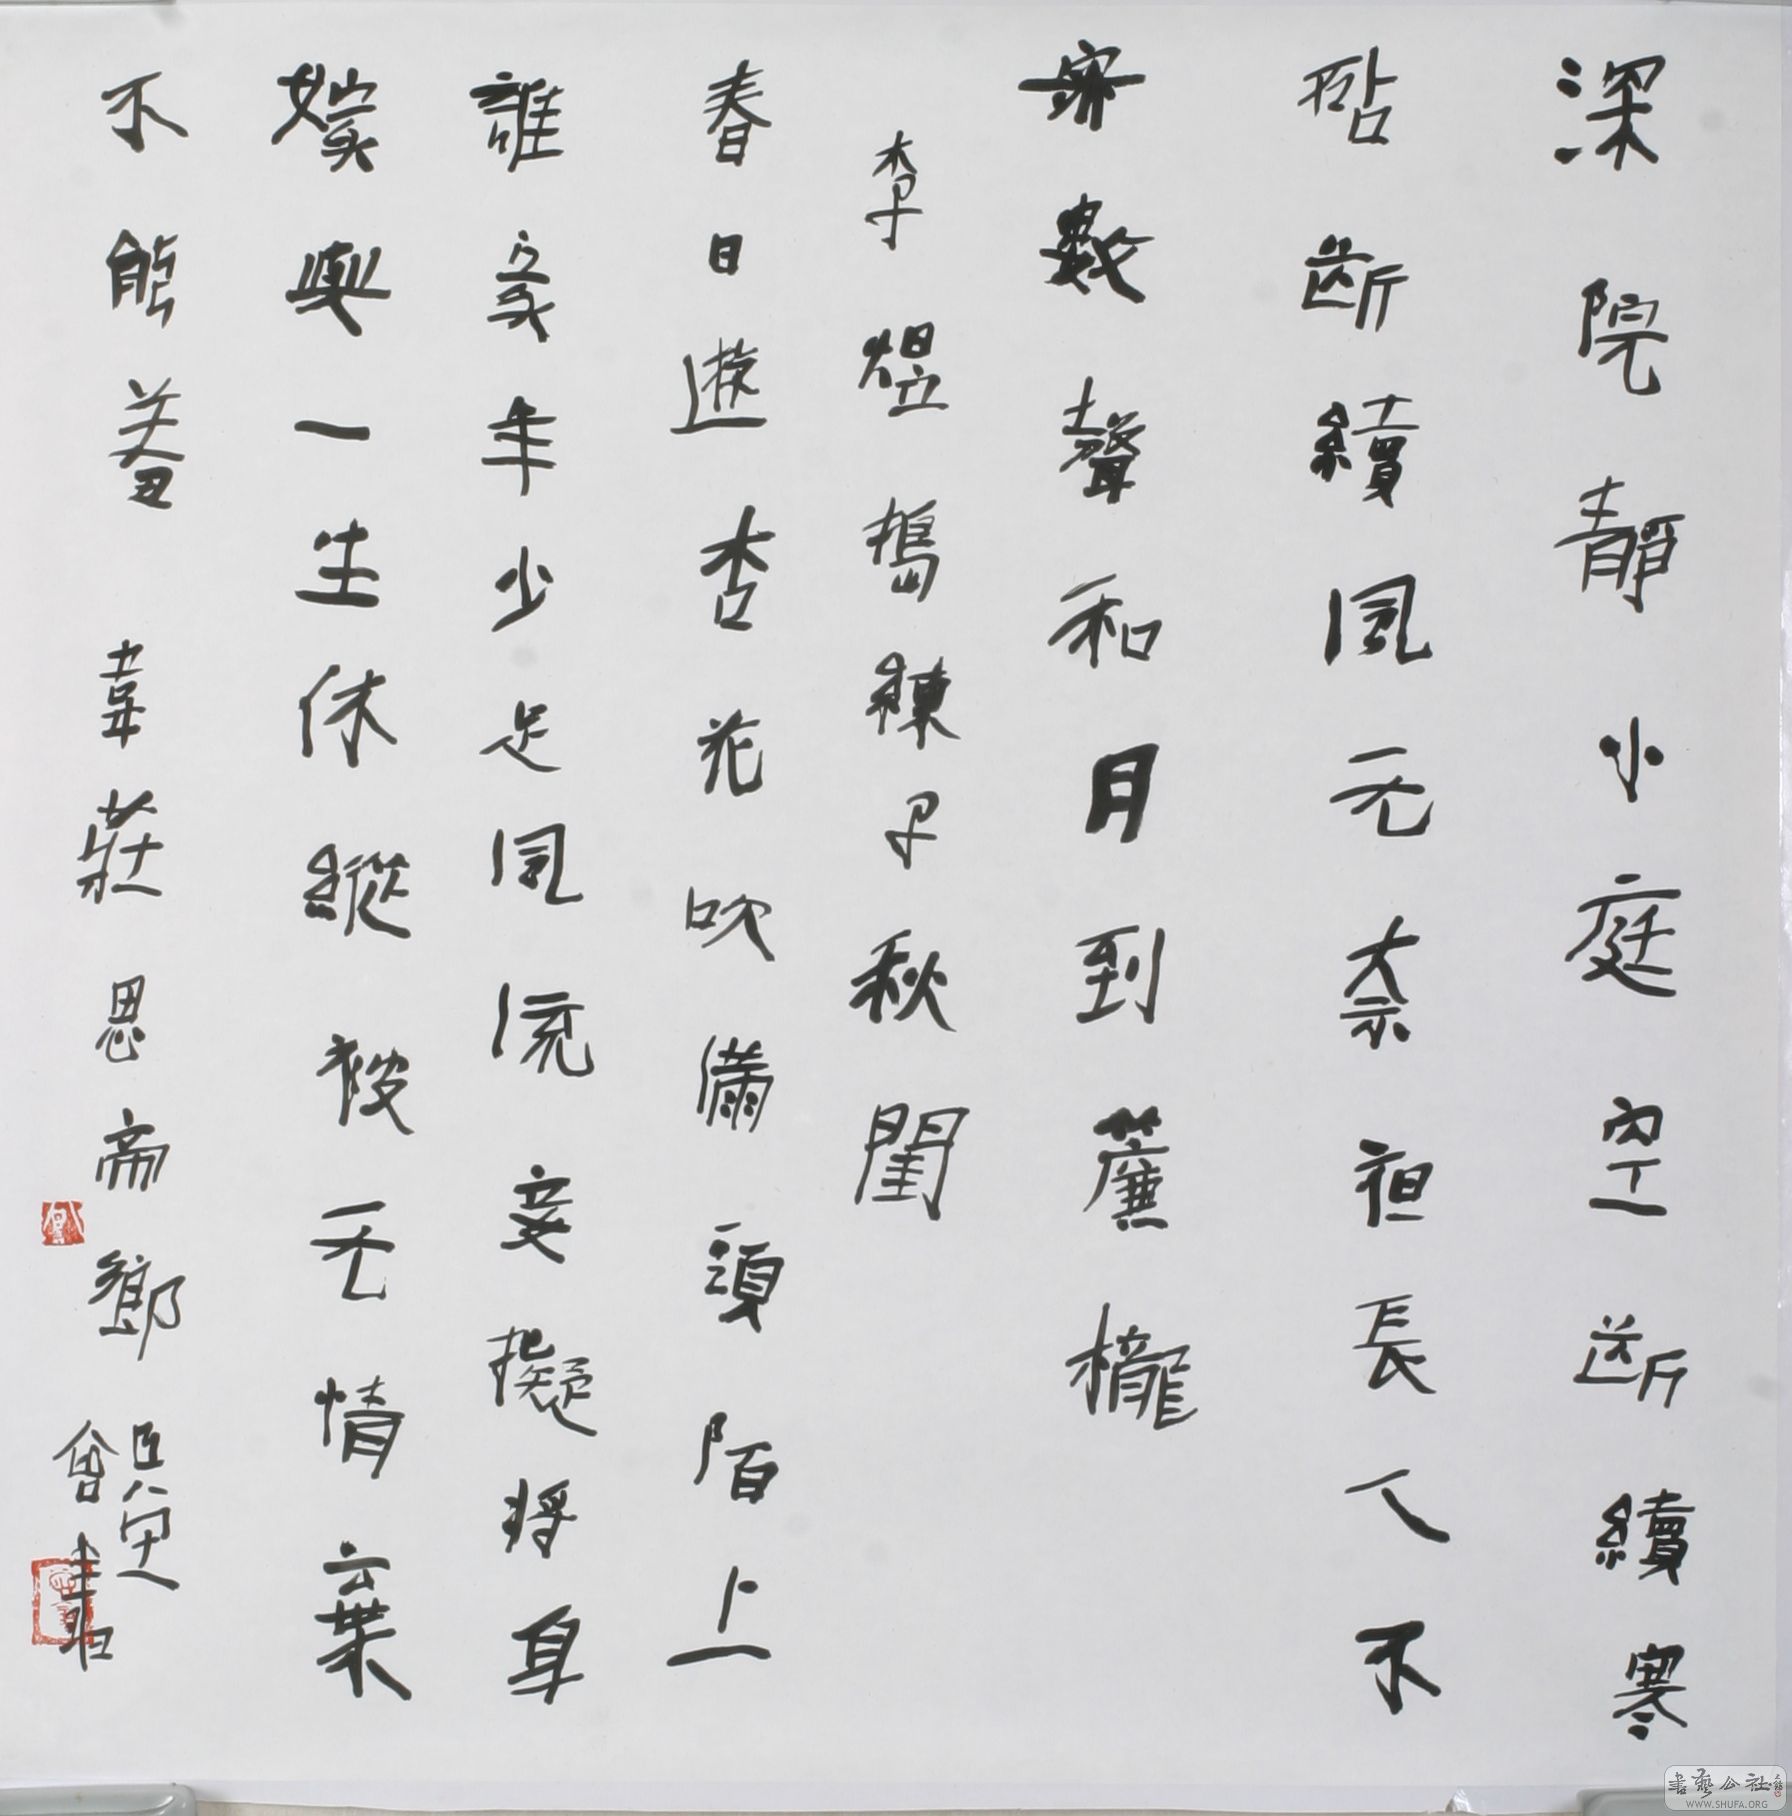 深院靜小庭空断續寒
砧断續風无奈夜長人不
寐數聲和月到簾櫳
李煜搗練子秋閨
春日遊杏花吹滿頭陌上
誰家年少足風流妾擬將身
嫁與一生休縱被无情棄
不能羞 韋莊思帝鄉
書藝公社
WWW.SHUFA.ORG